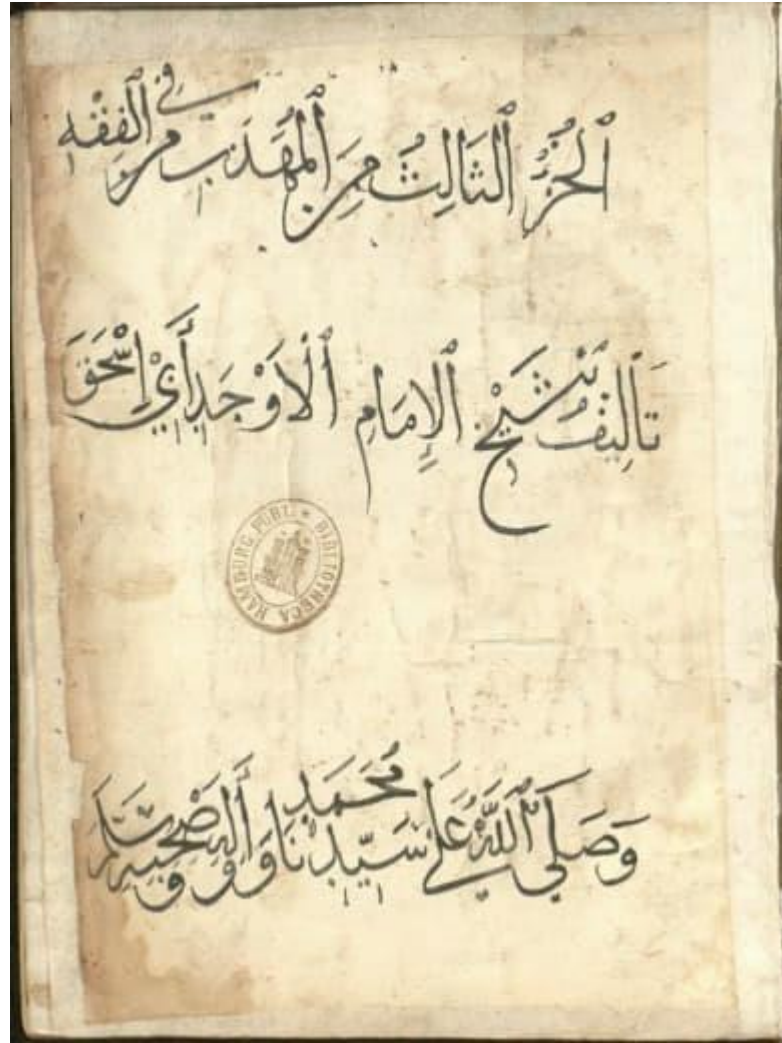 الجُزْءُ الثَالِثُ مِنَ المُهَذَبِ من في الفِقْهِ
تَألِيفُ الشَيْخِ الإِمَامِ الأَوْحَدِ أَبِيْ إِسْحَقَ
BIBLIOTHECA HAMBURG. PUBL.
وَصَلَّى اللَّهُ عَلَى سَيِّدِنَا مُحَمَدٍ وَآلِهِ وَصَحْبِهِ وَسَلَّمَ